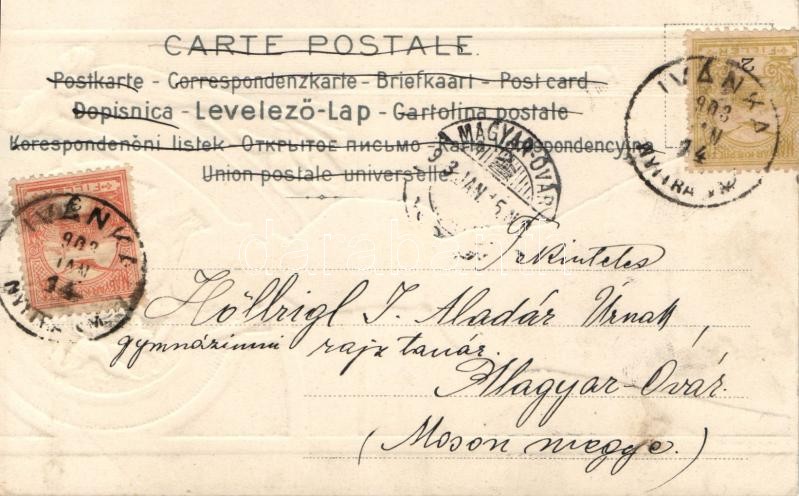 CARTE POSTALE.
Postkarte - Correspondenzkarte - Briefkaart - Post card
Dopisnica - Levelező-Lap - Cartolina postale
Korespondenčni listek - Открытое письмо - Karta korespondencyjna
Union postale universelle.
FILLÉR
IVÁNKA
903
JAN
14
NYITRA VM
2
FILLÉR
IVÁNKA
903
JAN
14
NYITRA VM
MAGYAR-ÓVÁR
903 JAN 15
Tekintetes
Höllrigl J. Aladár Úrnak,
gymnáziumi rajz tanár.
Magyar-Óvár.
(Moson megye.)
darabanth